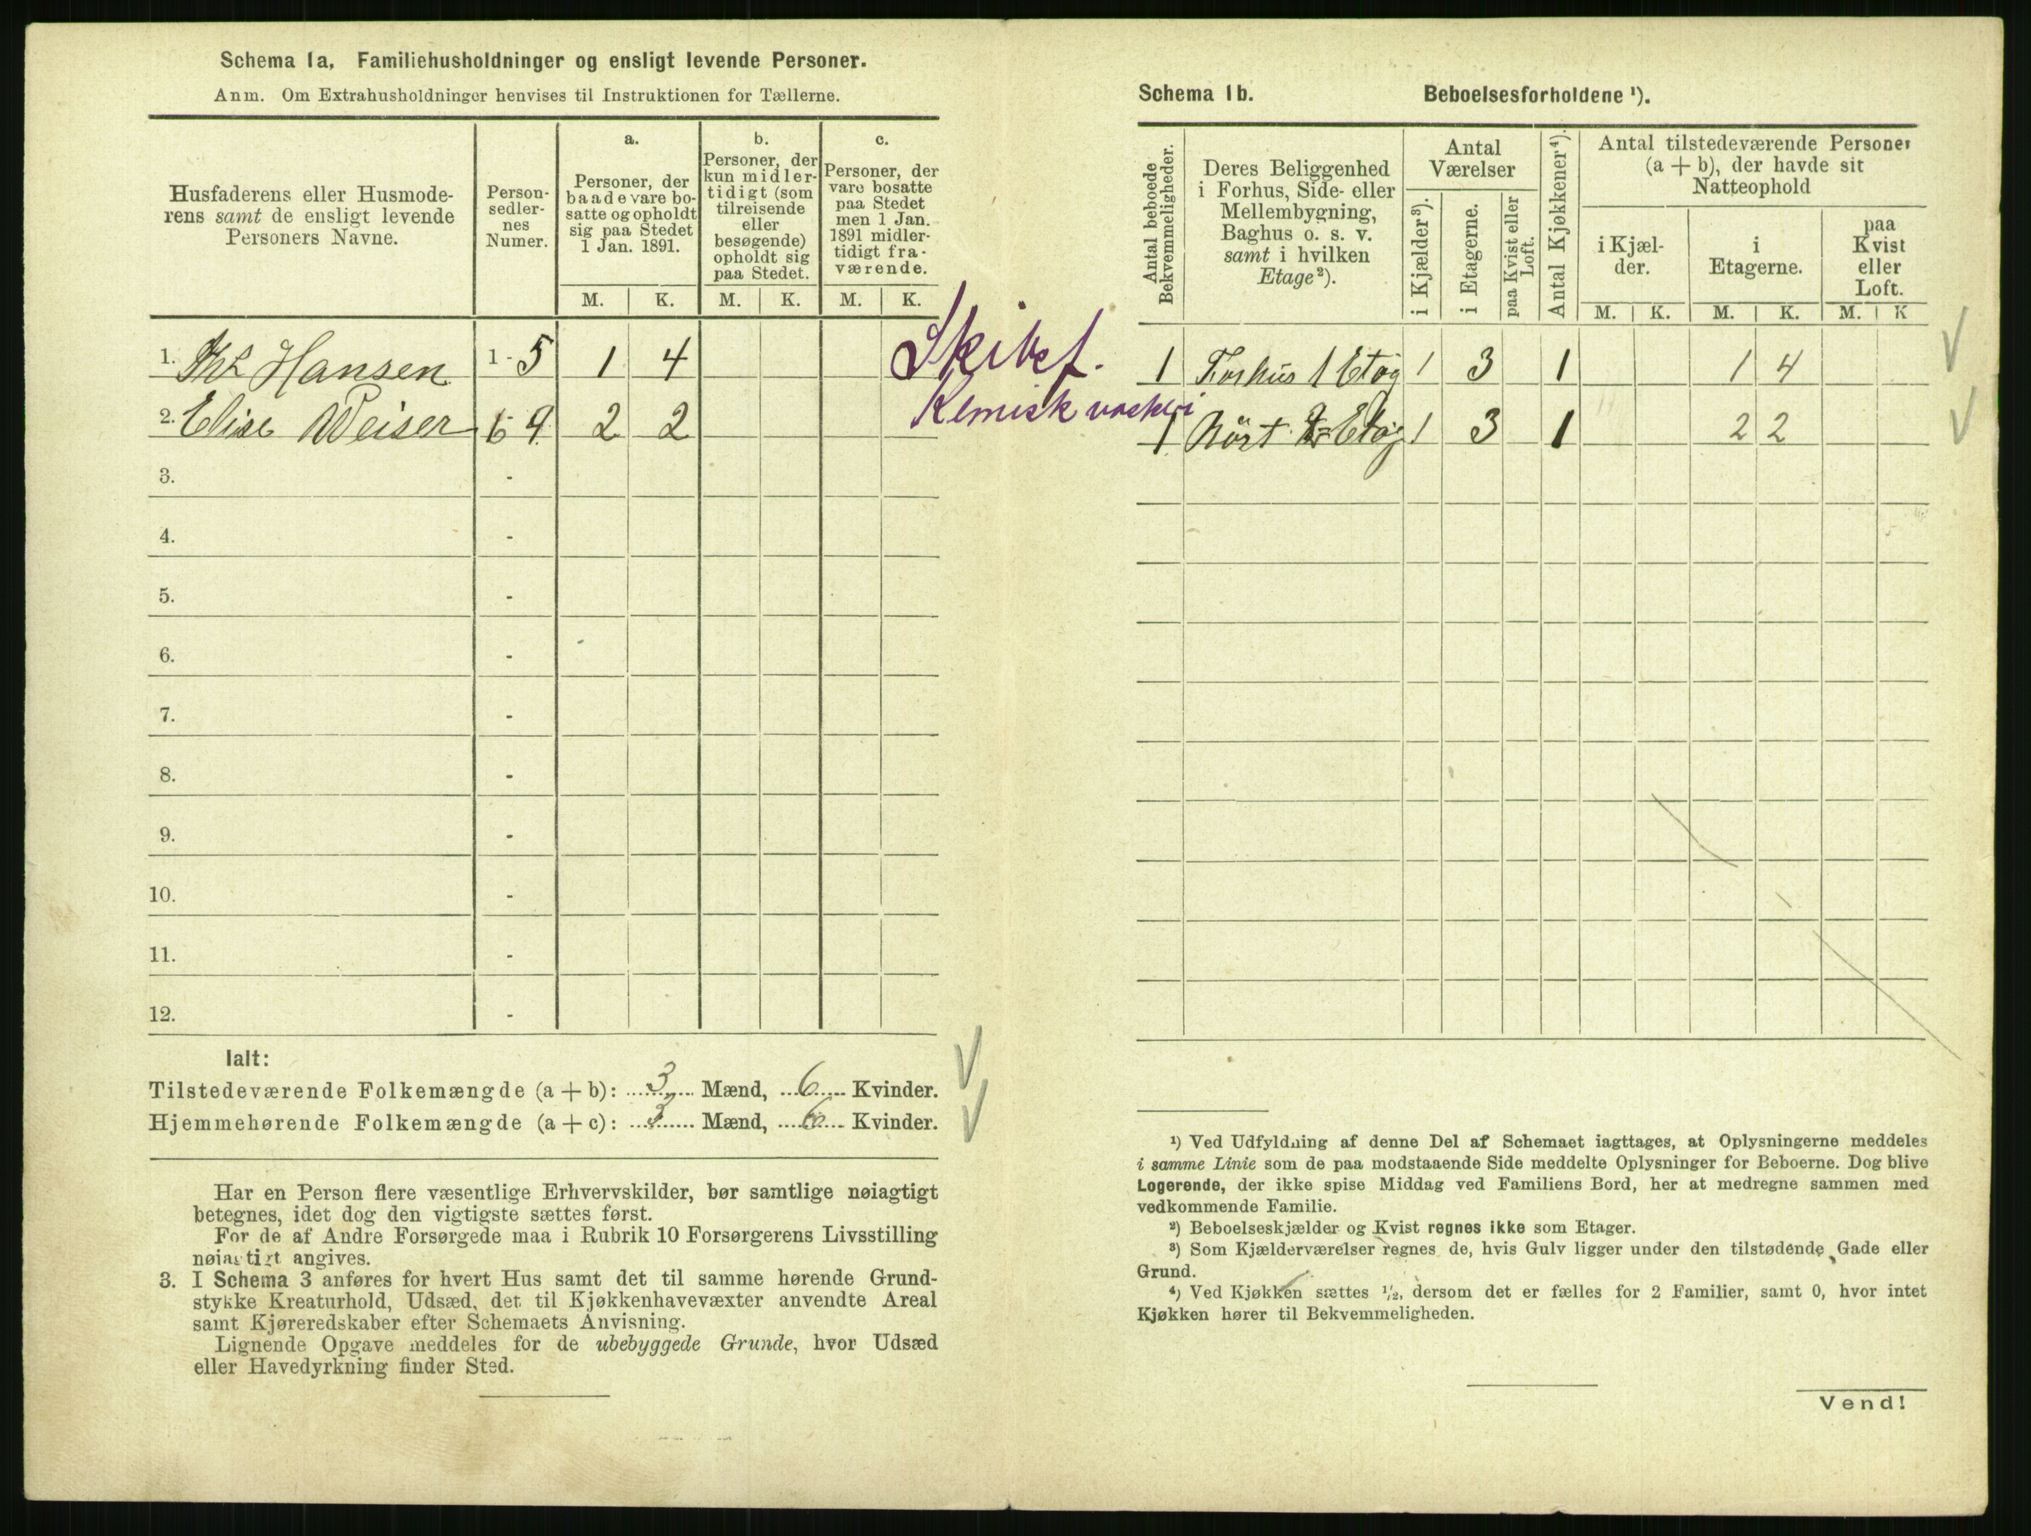 Schema 1a, Familiehusholdninger og ensligt levende Personer.
Anm. Om Extrahusholdninger henvises til Instruktionen for Tællerne.
Husfaderens eller Husmode-
rens samt de ensligt levende
Personers Navne.
Person-
sedler-
nes
Numer.
a.
Personer, der
baade vare bo-
satte og opholdt
sig paa Stedet
1 Jan. 1891.
b.
Personer, der
kun midler-
tidigt (som
tilreisende
eller
besøgende)
opholdt sig
paa Stedet.
c.
Personer, der
vare bosatte
paa Stedet
men 1 Jan.
1891 midler-
tidigt fra-
værende.
M. K. M. K. M. K.
1. Hansen 1 - 5 1 4
2. Elise Weiser 6 - 9 2 2
3. -
4. -
5. -
6. -
7. -
8. -
9. -
10. -
11. -
12. -
Ialt:
Tilstedeværende Folkemængde (a + b): 3 Mænd, 6 Kvinder.
Hjemmehørende Folkemængde (a + c): 3 Mænd, 6 Kvinder.
Har en Person flere væsentlige Erhvervskilder, bør samtlige nøiagtigt
betegnes, idet dog den vigtigste sættes først.
For de af Andre Forsørgede maa i Rubrik 10 Forsørgerens Livsstilling
nøiagtigt angives.
3. I Schema 3 anføres for hvert Hus samt det til samme hørende Grund-
stykke Kreaturhold, Udsæd, det til Kjøkkenhavevæxter anvendte Areal
samt Kjøreredskaber efter Schemaets Anvisning.
Lignende Opgave meddeles for de ubebyggede Grunde, hvor Udsæd
eller Havedyrkning finder Sted.
Kemisk vaskeri
Schema 1b. Beboelsesforholdene ¹).
Antal beboede
Bekvemmeligheder.
Deres Beliggenhed
i Forhus, Side- eller
Mellembygning,
Baghus o. s. v.
samt i hvilken
Etage²).
Antal
Værelser
i Kjælder³).
i Etagerne.
paa Kvist eller
Loft.
Antal Kjøkkener⁴).
Antal tilstedeværende Personer
(a + b), der havde sit
Natteophold
i Kjæl-
der.
i
Etagerne.
paa
Kvist
eller
Loft.
M. K. M. K. M. K
1 Forhus 1 Etag 1 3 1 1 4
1 2 Etag 1 3 1 2 2
¹) Ved Udfyldning af denne Del af Schemaet iagttages, at Oplysningerne meddeles
i samme Linie som de paa modstaaende Side meddelte Oplysninger for Beboerne. Dog blive
Logerende, der ikke spise Middag ved Familiens Bord, her at medregne sammen med
vedkommende Familie.
²) Beboelseskjælder og Kvist regnes ikke som Etager.
³) Som Kjælderværelser regnes de, hvis Gulv ligger under den tilstødende Gade eller
Grund.
⁴) Ved Kjøkken sættes ½, dersom det er fælles for 2 Familier, samt 0, hvor intet
Kjøkken hører til Bekvemmeligheden.
Vend!